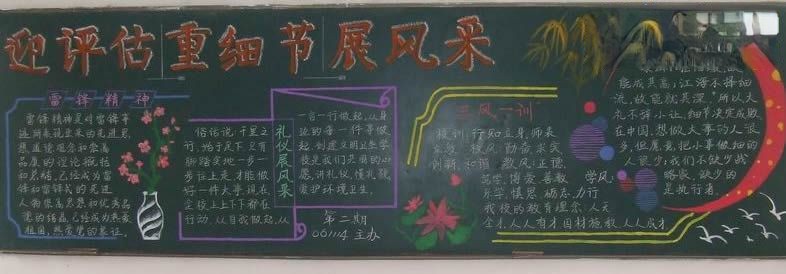 迎评估重细节展风采
雷锋精神
雷锋精神是对雷锋事
迹所表现出来的先进思
想道德观念和崇高
品质的理论概括
和总结,已经成为雷
锋和雷锋式的先进
人物崇高思想和优秀品
德的结晶,已经成为热爱
祖国,热爱党的象征。
俗话说,千里之
行,始于足下,只有
脚踏实地一步一
步往上走,才能做
好一件大事,现在
全校上上下下都在
行动,从自我做起,从
礼仪展风采
一言一行做起,从身
边的每一件事做
起,创建文明卫生学
校是我们美丽的心
愿,讲礼仪,懂礼貌
爱护环境卫生。
第二期
061114 主办
三风一训
校训:行知立身,师表
校风:勤奋,求实
创新,和谐 教风:正德,
笃学,博爱,善教
学风:
乐学,慎思,砺志,力行
我校的教育理念,人无
全才,人人有才,因材施教,人人成才
能成其高;江海不择细
流,故能就其深。”所以,大
礼不辞小让,细节决定成败
在中国,想做大事的人很
多,但愿意把小事做细的
人很少;我们不缺少战
略家,缺少的
是执行者。